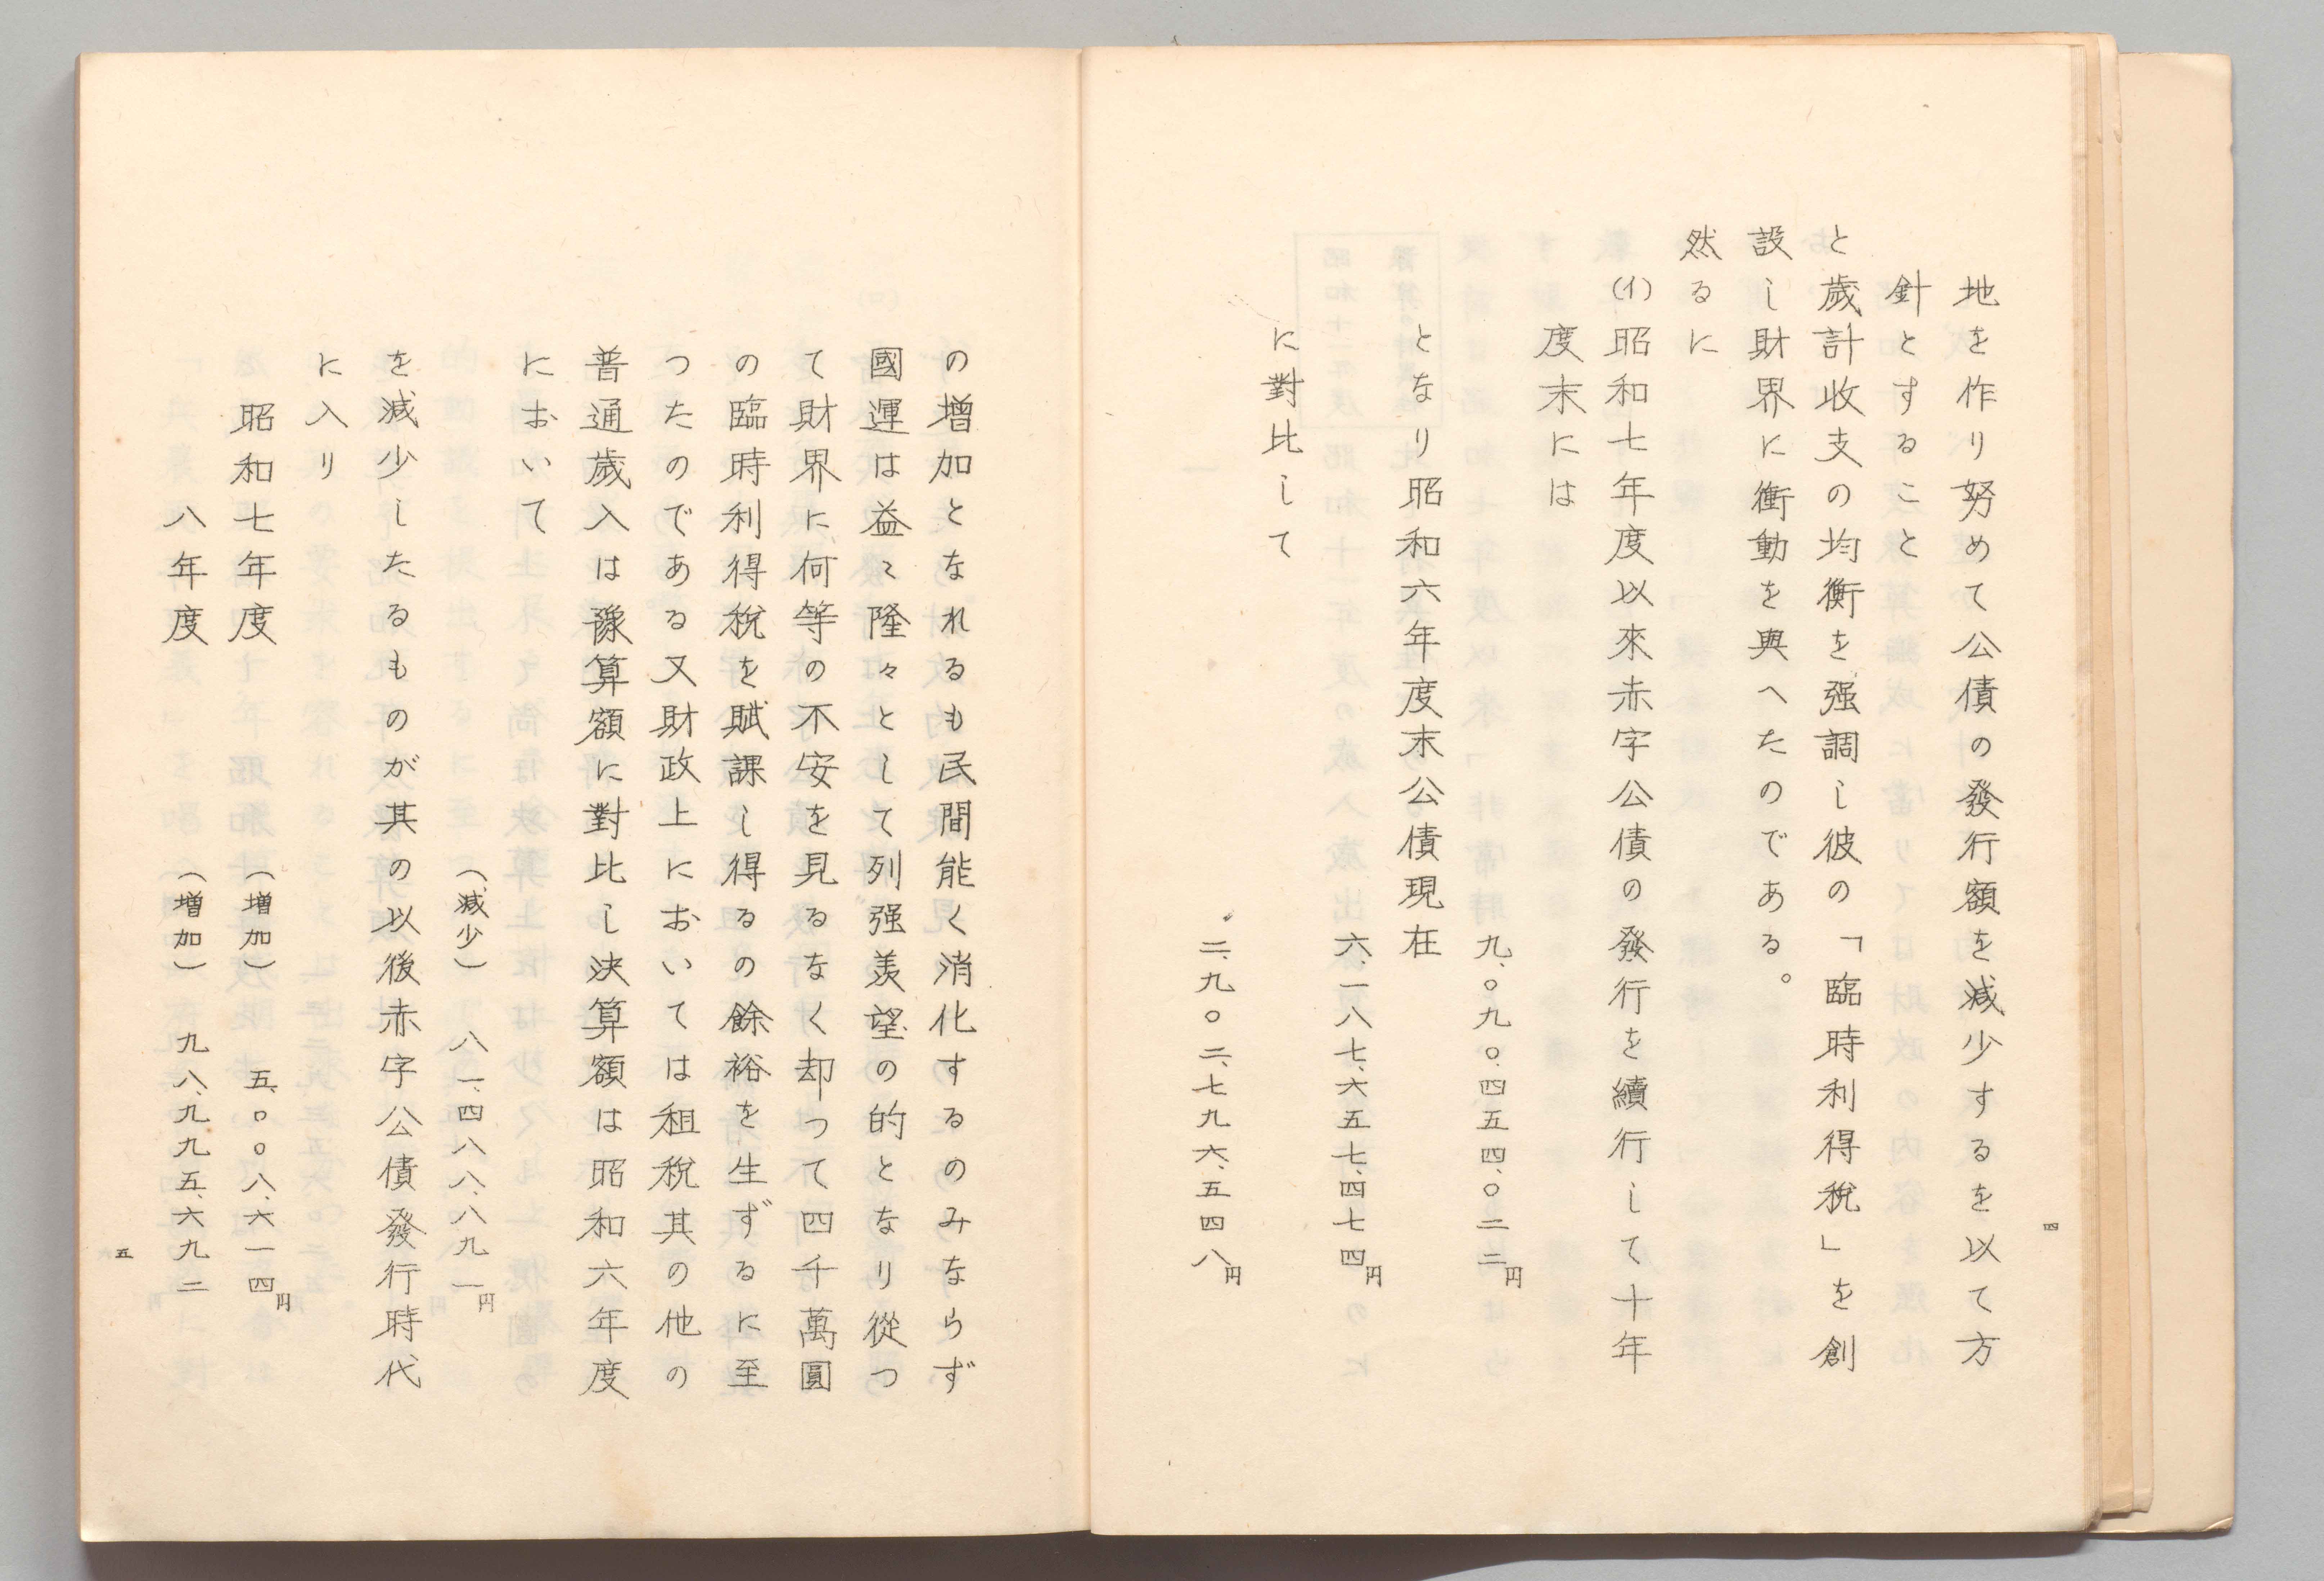 地を作り努めて公債の發行額を減少するを以て方
針とすること
と歲計收支の均衡を强調し彼の「臨時利得稅」を創
設し財界に衝動を與へたのである。
然るに
(イ)昭和七年度以來赤字公債の發行を續行して十年
度末には
九、〇九〇、四五四、〇二二円
となり昭和六年度末公債現在
六、一八七、六五七、四七四円
に對比して
二、九〇二、七九六、五四八円
四
の增加となれるも民間能く消化するのみならず
國運は益〻隆々として列强羨望の的となり從つ
て財界に何等の不安を見るなく却って四千萬圓
の臨時利得稅を賦課し得るの餘裕を生ずるに至
つたのである又財政上においては租稅其の他の
普通歲入は豫算額に對比し決算額は昭和六年度
において
(減少) 八一、四八八、八九一円
を減少したるものが其の以後赤字公債發行時代
に入り
昭和七年度 (增加) 五、〇〇八、六一四円
八年度 (增加) 九八、九九五、六九二
五